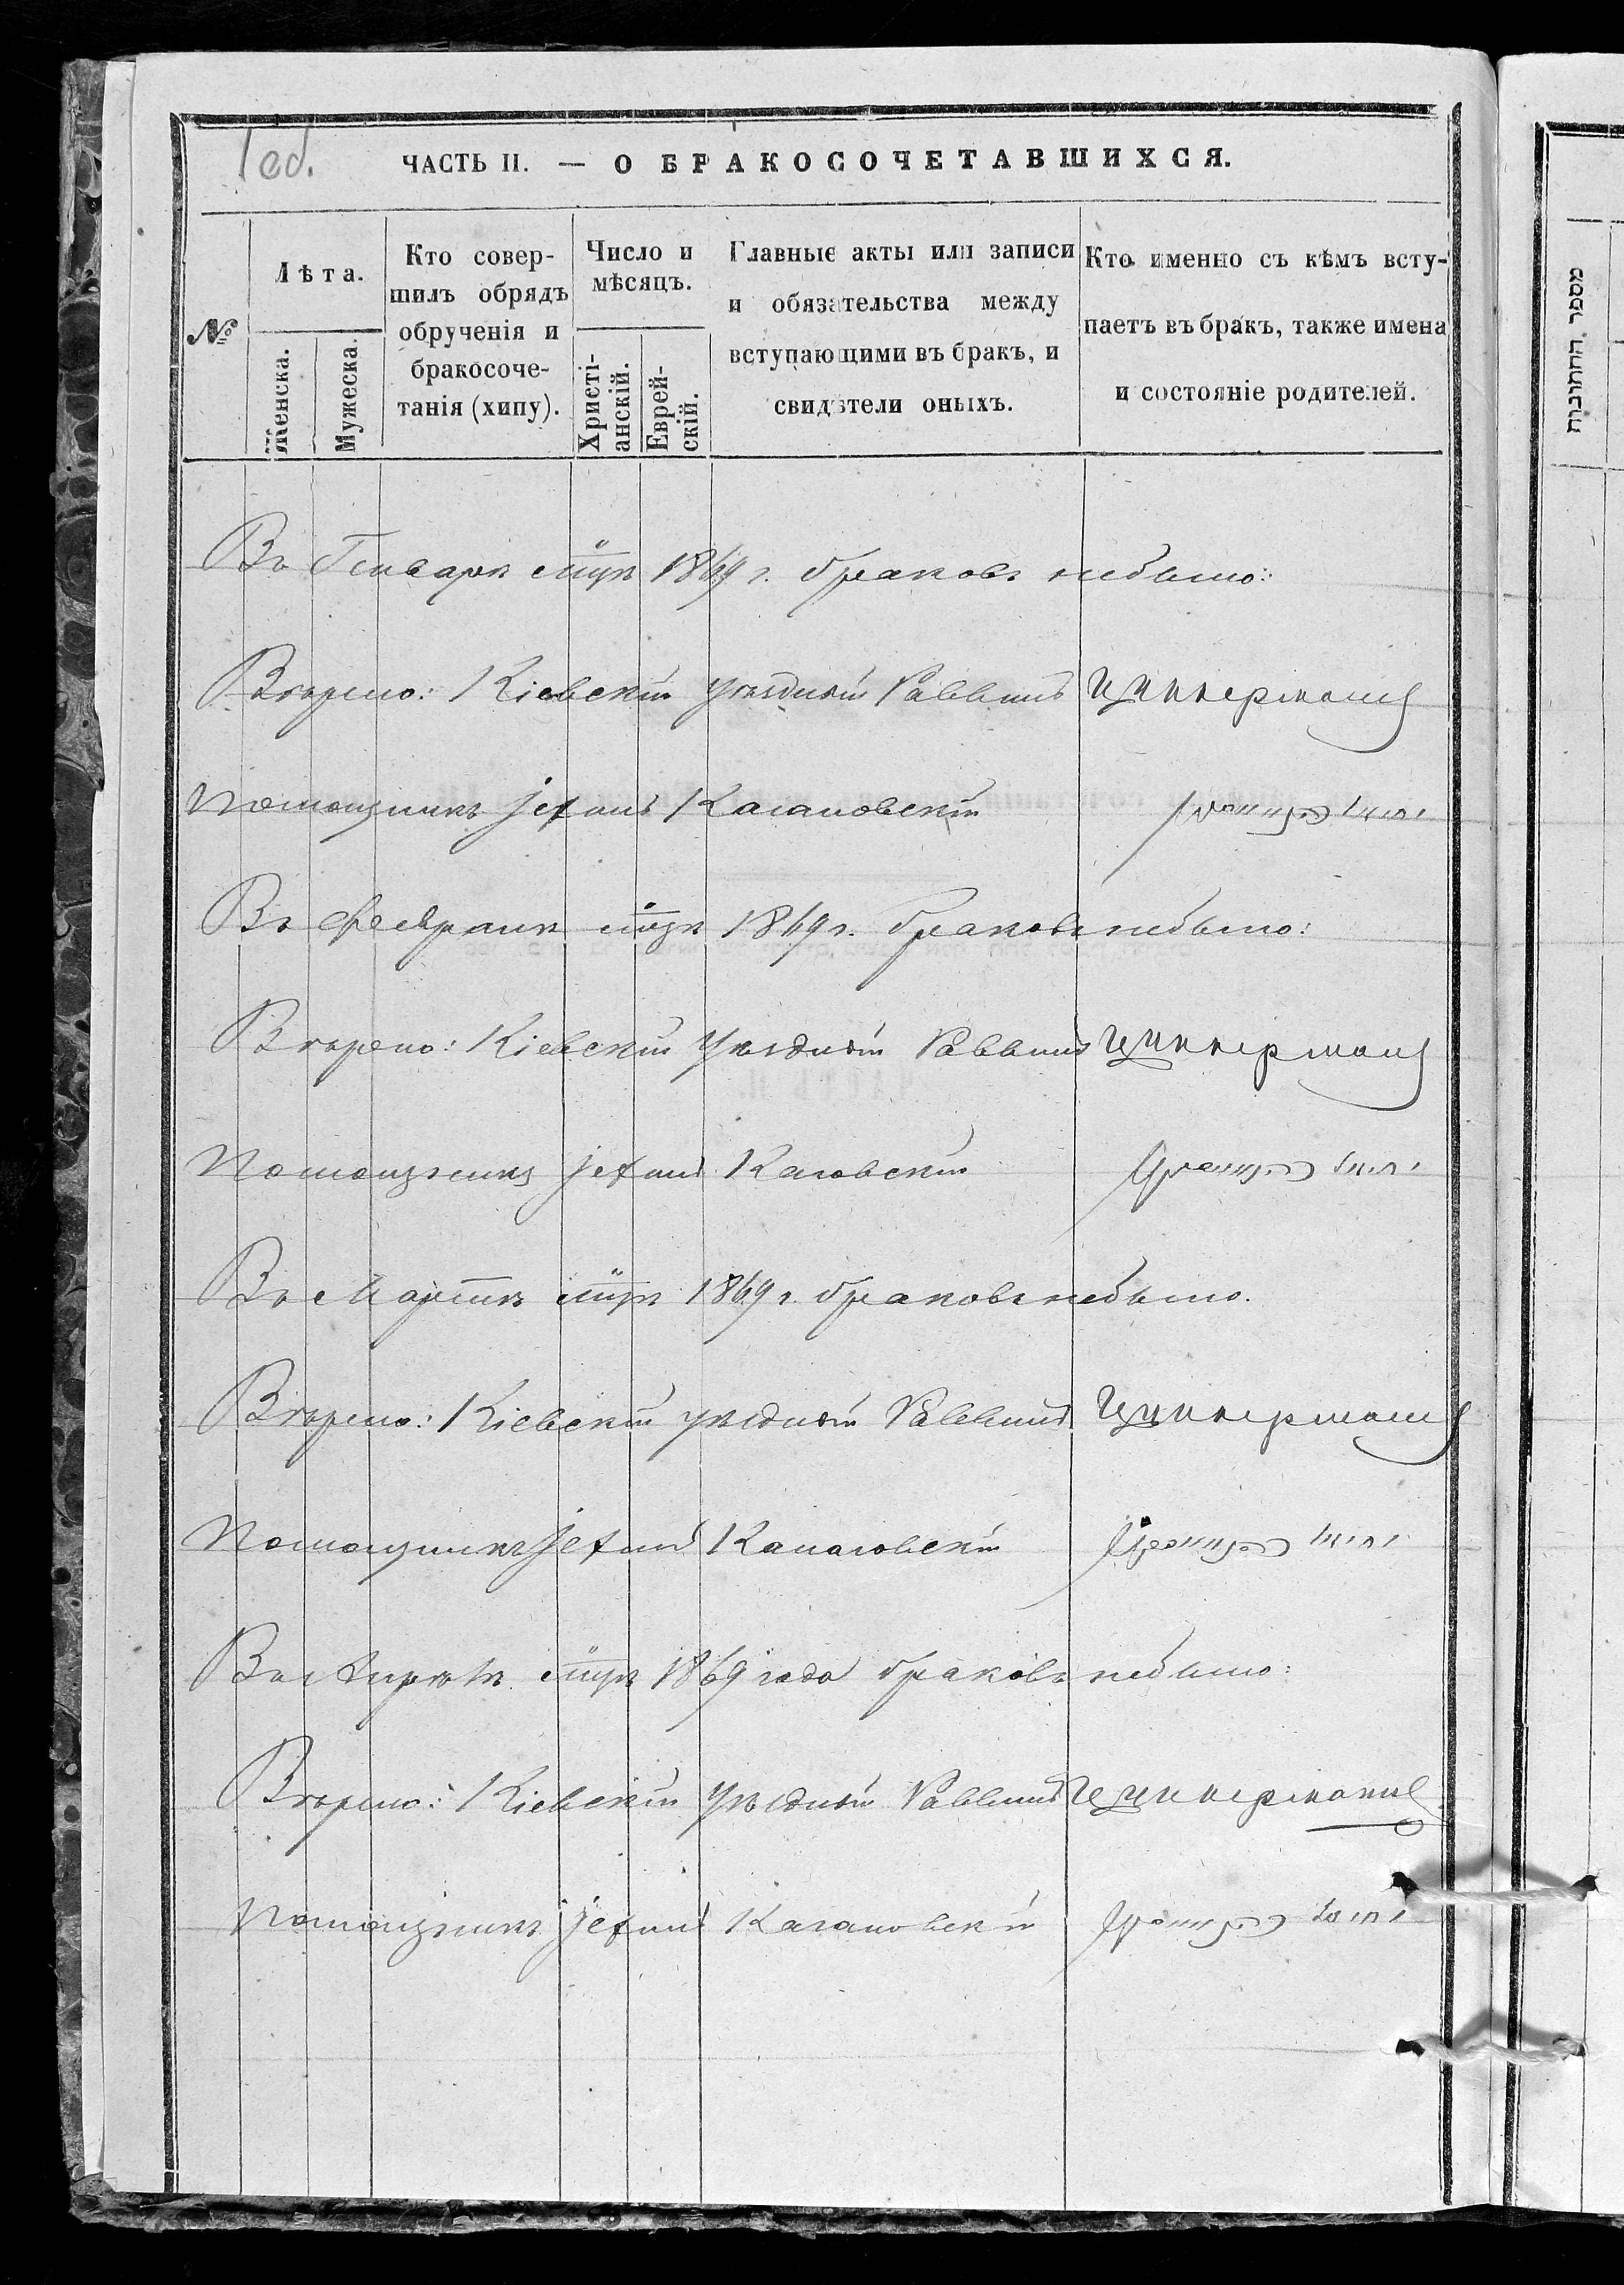 ЧАСТЬ II. — О БРАКОСОЧЕТАВШИХСЯ.
№
Лѣта.
Женска.
Мужеска.
Кто совер-
шилъ обрядъ
обрученія и
бракосоче-
танія (хипу).
Число и
мѣсяцъ.
Христі-
анскій.
Еврей-
скій.
Главные акты или записи
и обязательства между
вступающими въ бракъ, и
свидѣтели оныхъ.
Кто именно съ кѣмъ всту-
паетъ въ бракъ, также имена
и состояніе родителей.
מספר החתונות
Въ Генварѣ м-цѣ 1869 г. браковъ небыло:
Вѣрно: Кіевскій Уѣздный Раввинъ Цукерманъ
Помощникъ Кагановскій
Въ Февралѣ м-цѣ 1869 г. браковъ небыло:
Вѣрно: Кіевскій Уѣздный Раввинъ Цукерманъ
Помощникъ
Въ Мартѣ м-цѣ 1869 г. браковъ небыло.
Вѣрно: Кіевскій уѣздный Раввинъ Цукерманъ
Помощникъ
Въ Апрѣлѣ м-цѣ 1869 года браковъ небыло:
Вѣрно: Кіевскій Уѣздный Раввинъ Цукерманъ
Помощникъ Кагановскій